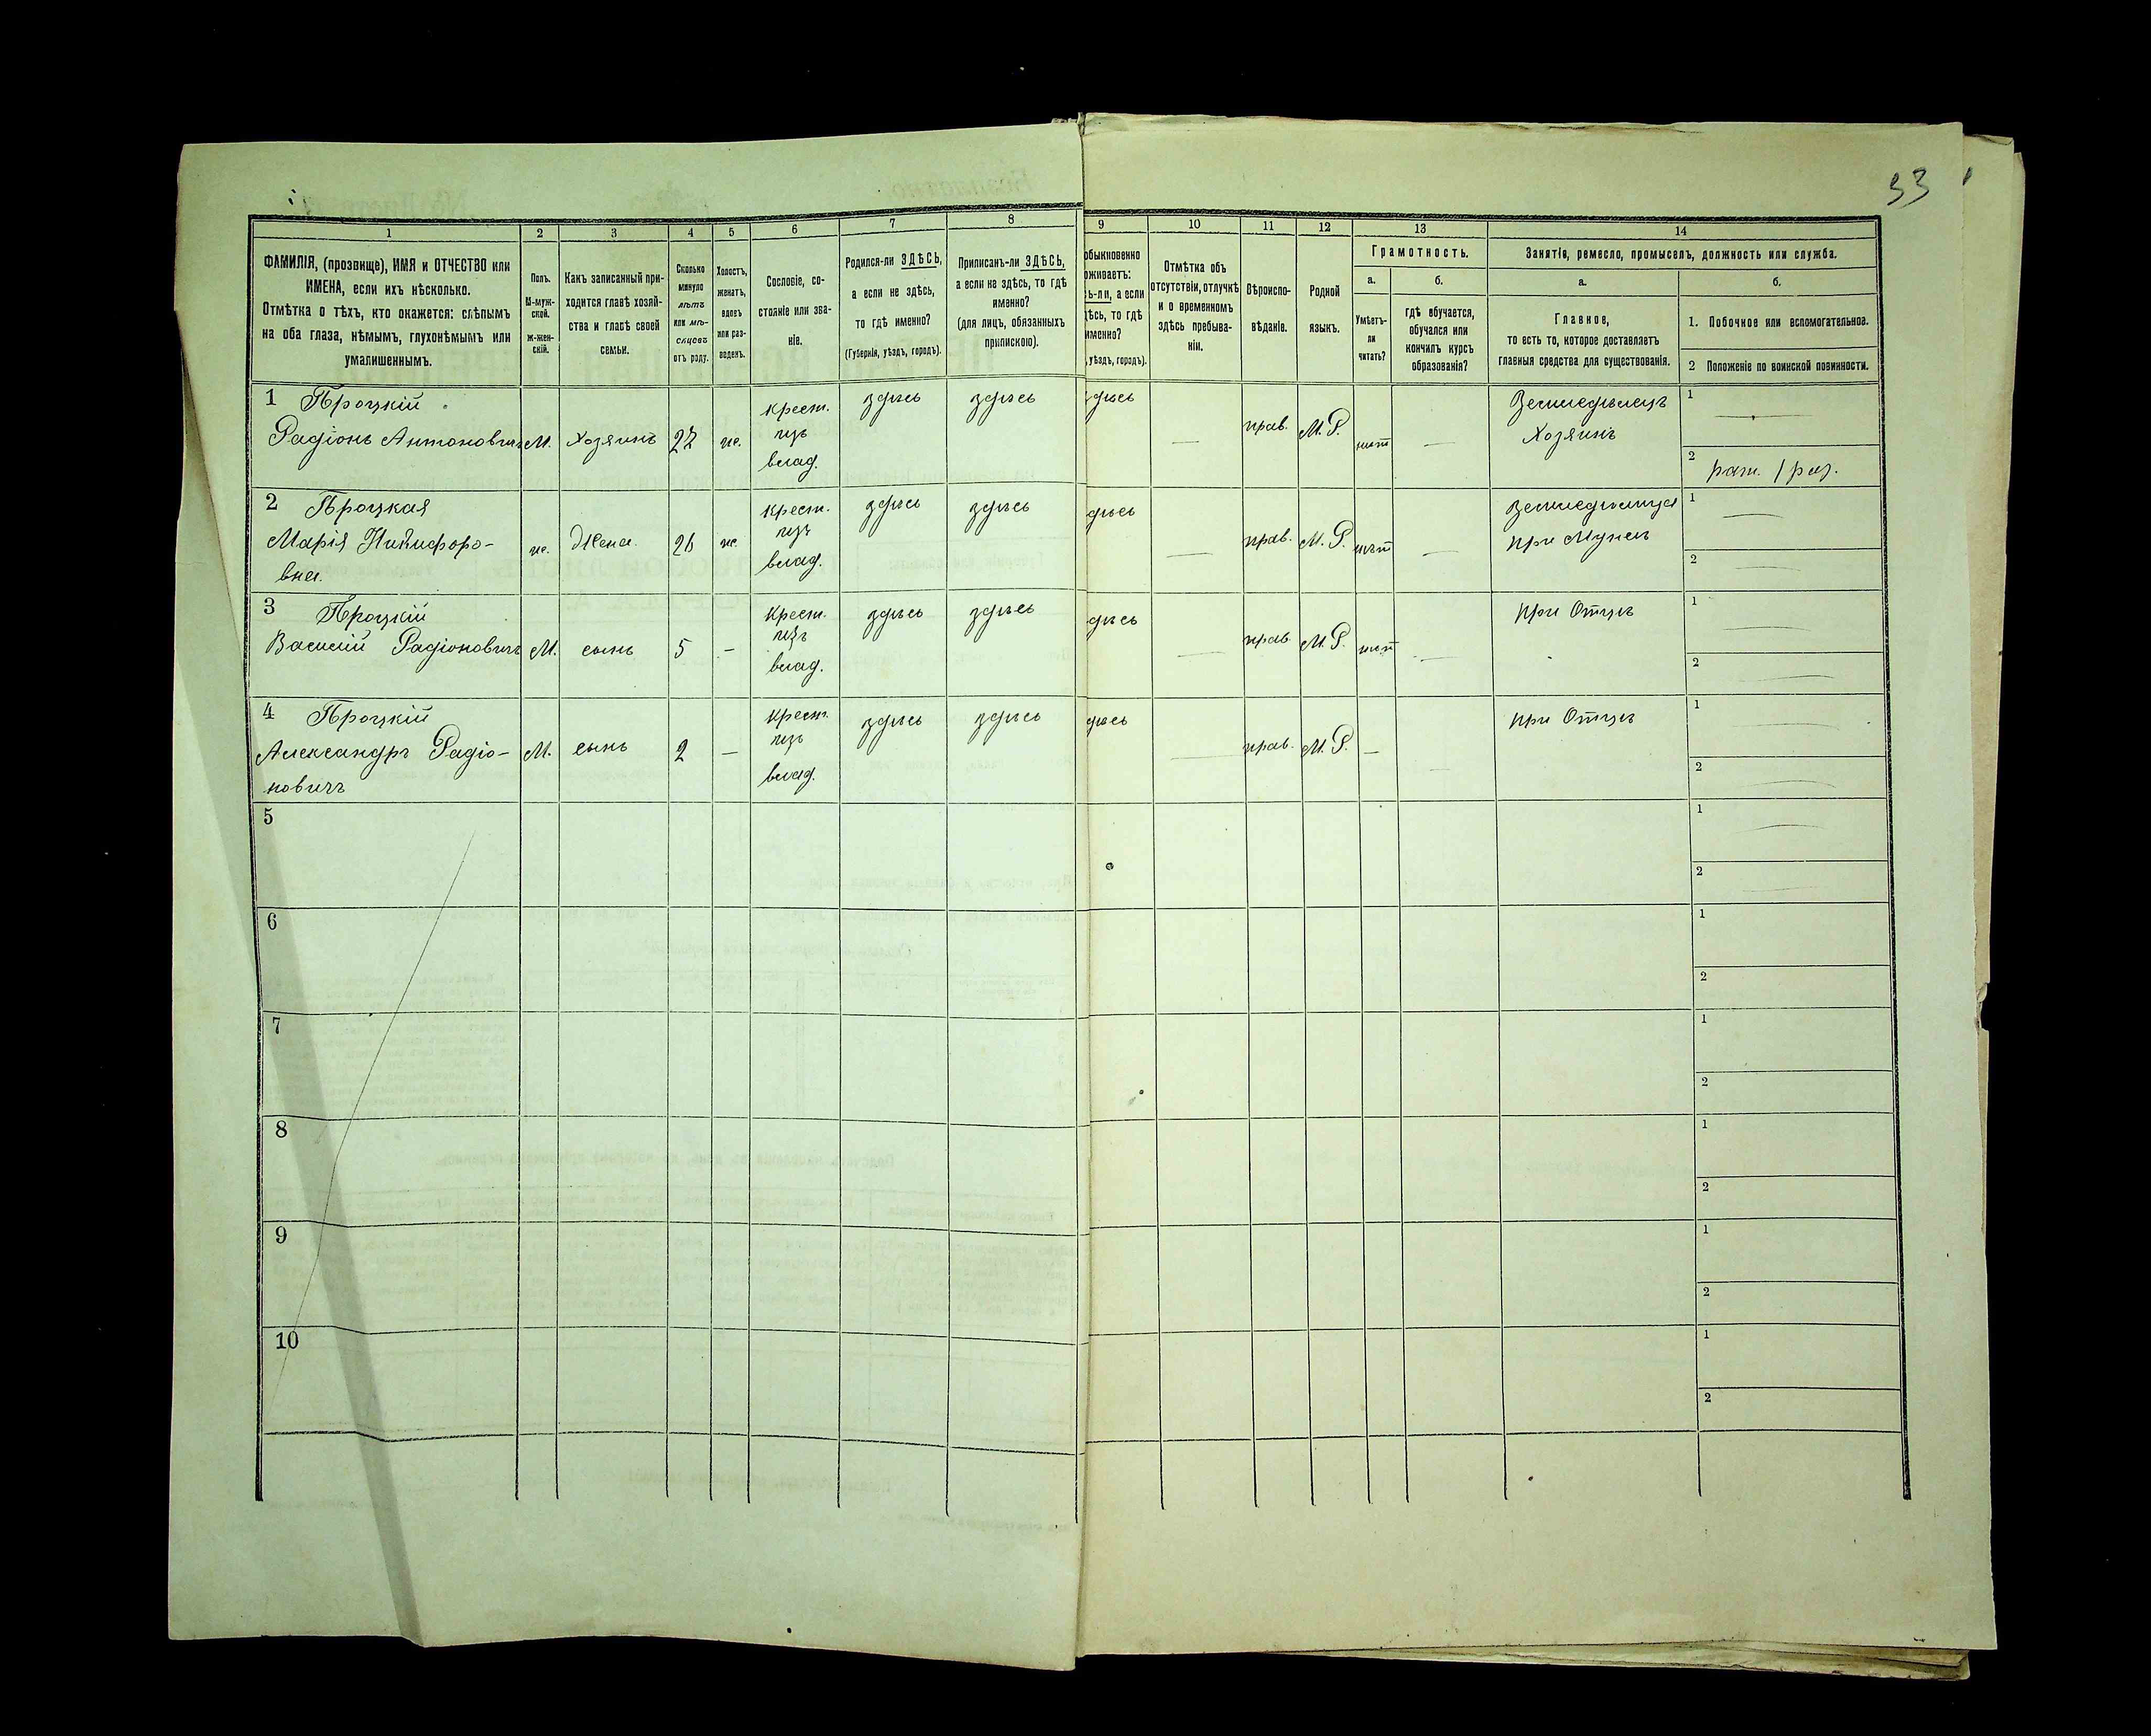 33
1
2
3
4
5
6
7
8
9
10
11
12
13
14
ФАМИЛІЯ, (прозвище), ИМЯ и ОТЧЕСТВО или
ИМЕНА, если ихъ нѣсколько.
Отмѣтка о тѣхъ, кто окажется: слѣпымъ
на оба глаза, нѣмымъ, глухонѣмымъ или
умалишеннымъ.
Полъ.
М-муж-
ской.
ж-жен-
скій.
Какъ записанный при-
ходится главѣ хозяй-
ства и главѣ своей
семьи.
Сколько
минуло
лѣтъ
или мѣ-
сяцевъ
отъ роду.
Холостъ,
женатъ,
вдовъ
или раз-
веденъ.
Сословіе, со-
стояніе или зва-
ніе.
Родился-ли ЗДѢСЬ,
а если не здѣсь,
то гдѣ именно?
(Губернія, уѣздъ, городъ).
Приписанъ-ли ЗДѢСЬ,
а если не здѣсь, то гдѣ
именно?
(для лицъ, обязанныхъ
припискою).
обыкновенно
оживаетъ:
ь-ли, а если
дѣсь, то гдѣ
именно?
, уѣздъ, городъ).
Отмѣтка объ
отсутствіи, отлучкѣ
и о временномъ
здѣсь пребыва-
ніи.
Вѣроиспо-
вѣданіе.
Родной
языкъ.
Грамотность.
а.
Умѣетъ-
ли
читать?
б.
гдѣ обучается,
обучался или
кончилъ курсъ
образованія?
Занятіе, ремесло, промыселъ, должность или служба.
а.
Главное,
то есть то, которое доставляетъ
главныя средства для существованія.
б.
1. Побочное или вспомогательное.
2 Положеніе по воинской повинности.
1 Процкій
Радіонъ Антоновичъ
М.
Хозяинъ
27
ж.
крест.
изъ
влад.
здѣсь
здѣсь
здѣсь
—
прав.
М. Р.
нѣт
—
Земледѣлецъ
Хозяинъ
1 —
2 рат. 1 раз.
2 Процкая
Марія Никифоро-
вна.
ж.
Жена
26
ж.
крест.
изъ
влад.
здѣсь
здѣсь
дѣсь
—
прав.
М. Р.
нѣт
—
земледѣлица
при Мужѣ
1 —
2 —
3 Процкій
Василій Радіоновичъ
М.
сынъ
5
—
крест.
изъ
влад.
здѣсь
здѣсь
дѣсь
—
прав.
М. Р.
нѣт
—
при Отцѣ
1 —
2 —
4 Процкій
Александръ Радіо-
новичъ
М.
сынъ
2
—
крест.
изъ
влад.
здѣсь
здѣсь
дѣсь
—
прав.
М. Р.
—
—
при Отцѣ
1 —
2 —
5
1 —
2 —
6
1
2
7
1
2
8
1
2
9
1
2
10
1
2